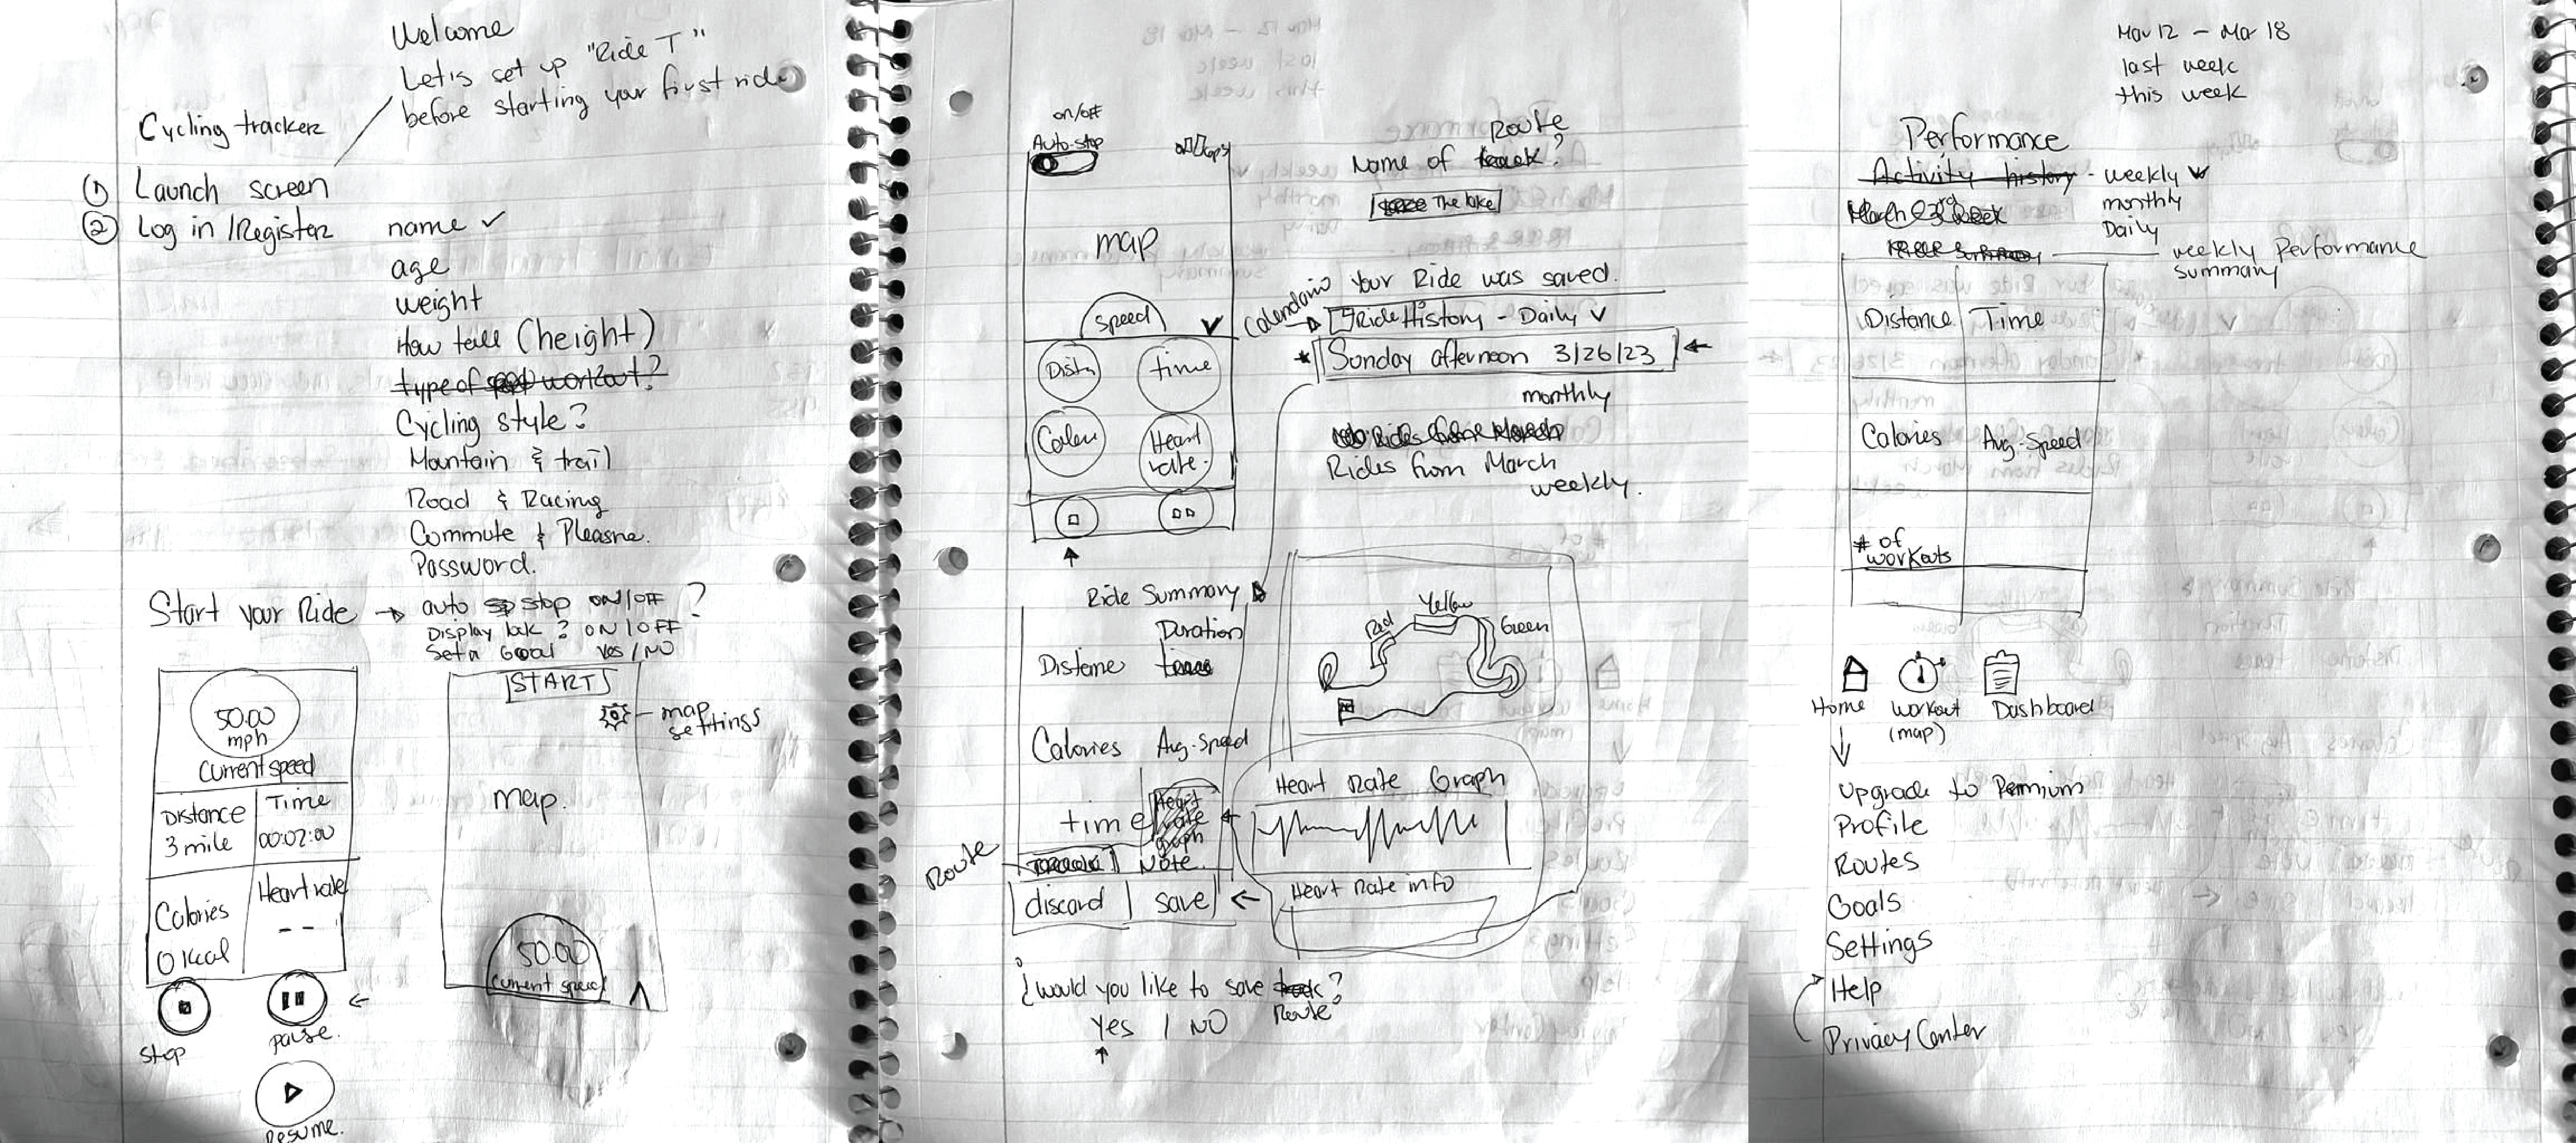 Welcome
Let's set up "Ride T"
before starting your first ride
Cycling tracker
① Launch screen
② Log in /Register
name ✓
age
weight
How tall (height)
type of workout?
Cycling style?
Mountain & trail
Road & Racing
Commute & Pleasure.
Password.
Start your Ride → auto stop ON/OFF ?
Display lock ? ON / OFF
Set a Goal Yes / NO
50.00
mph
Current speed
Distance
3 mile
Time
00:02:00
Calories
0 kcal
Heart rate
--
Stop
pause.
Resume.
START
map settings
map.
50.00
current speed
on/off
Auto-stop
GPS
map
Speed
Dist
time
Heart rate.
Route
Name of track?
The lake
Your Ride was saved.
Calendario
Ride History - Daily
* Sunday afternoon 3/26/23
monthly
Rides from March
Rides from March
weekly.
Ride Summary
Duration
Distance time
Calories Avg. Speed
time
Heart rate graph
Route
Note
discard | save
Red
Yellow
Green
Heart Rate Graph
Heart Rate info
¿would you like to save track?
Route
Yes / NO
Mar 12 - Mar 18
last week
this week
Performance
Activity history - weekly
monthly
Daily
March 3rd week
weekly Performance
summary
Distance Time
Calories Avg. Speed
# of
workouts
Home
workout
(map)
Dashboard
Upgrade to Premium
Profile
Routes
Goals
Settings
Help
Privacy Center